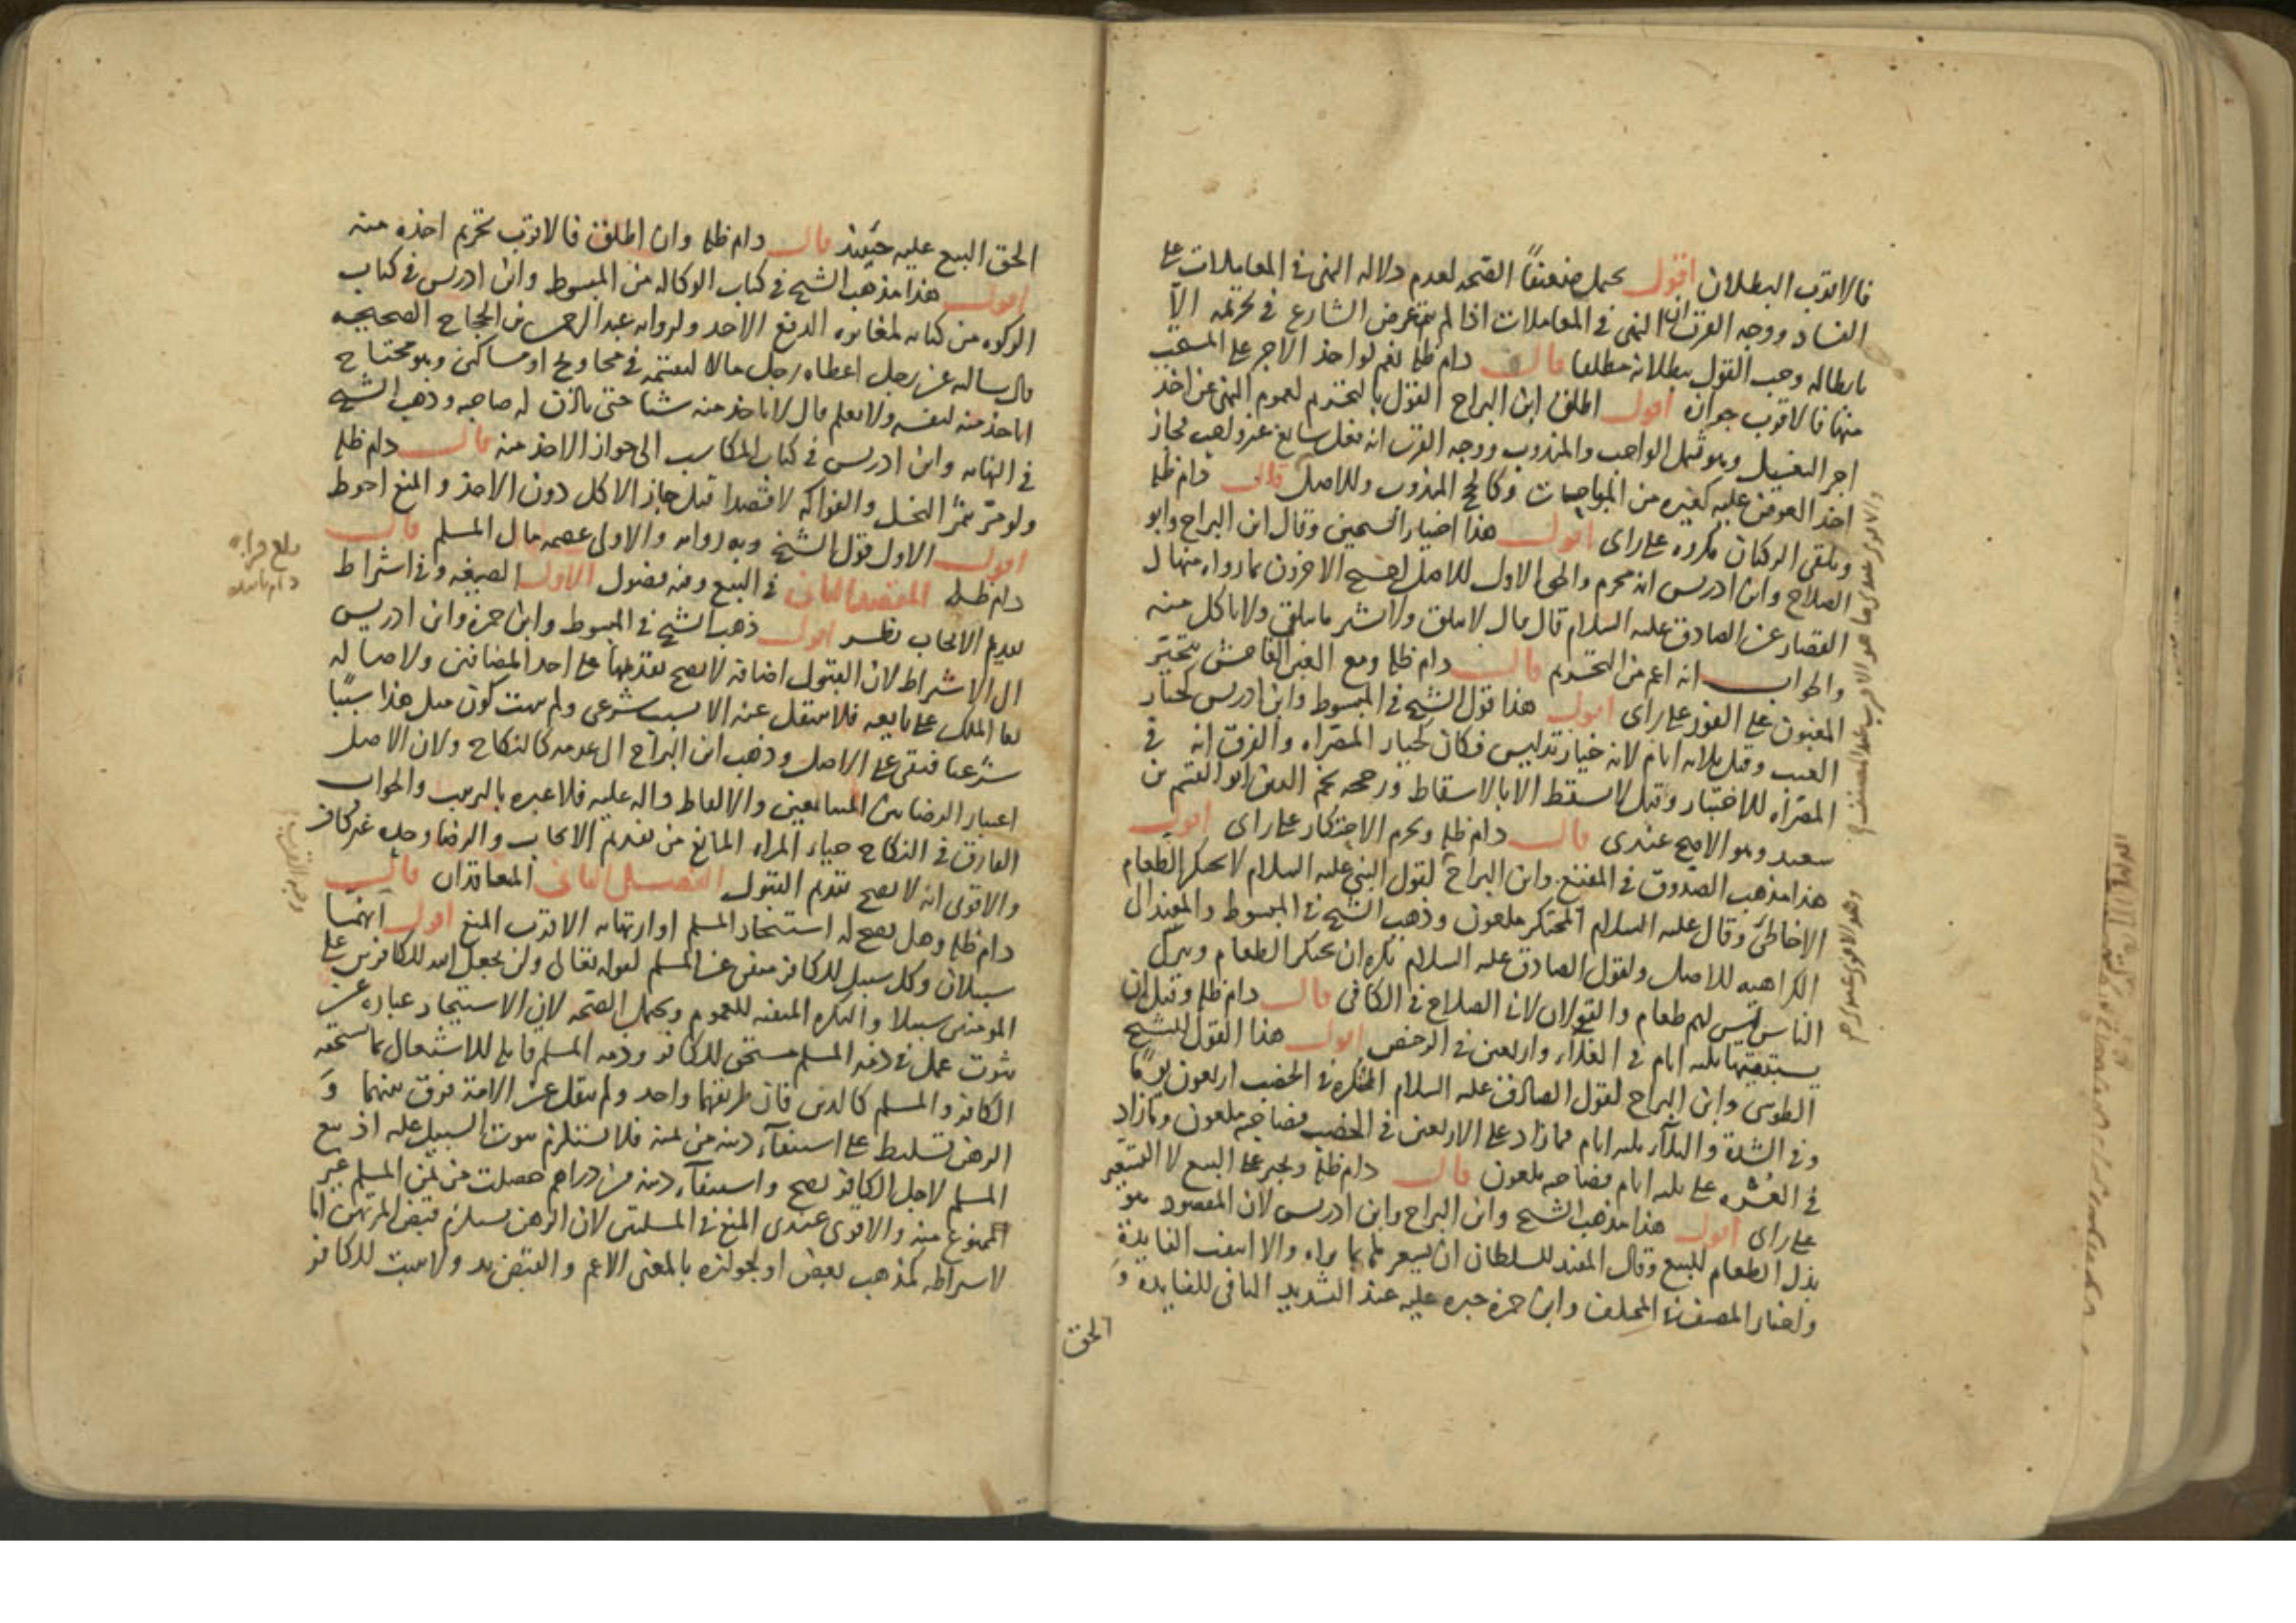 فالاقرب البطلان اقول يحتمل ضعيفًا الصحه لعدم دلاله النهى فى المعاملات على
الفساد ووجه القرب ان النهى فى المعاملات اذا لم يتعرض الشارع فى تحريمه الا
بابطاله وجب القول ببطلانه مطلقا قال دام ظله نعم لو اخذ الاجر على المستحب
منها فالاقرب جوازه اقول اطلق ابن البراج القول بالتحريم لعموم النهى عن اخذ
اجر التغسيل وهو يشمل الواجب والمندوب ووجه القرب انه فعل سايغ غير واجب فجاز
اخذ العوض عليه كغيره من المباحات وكالحج المندوب وللاصل قال دام ظله
وتلقى الركبان مكروه على راى اقول هذا اختيار الشيخين وقال ابن البراج وابو
الصلاح وابن ادريس انه محرم والحق الاول للاصل احتج الاخرون بما رواه منهال
القصاب عن الصادق عليه السلام قال قال لا تلق ولا تشتر ما يتلقى ولا تاكل منه
والجواب انه اعم من التحريم قال دام ظله ومع الغبن الفاحش يتخير
المغبون على الفور على راى اقول هذا قول الشيخ فى المبسوط وابن ادريس كخيار
العيب وقيل ثلاثه ايام لانه خيار تدليس فكان كخيار المصراه والفرق انه فى
المصراه للاختبار وقيل لا يسقط الا بالاسقاط ورجحه نجم الدين ابو القسم بن
سعيد وهو الاصح عندى قال دام ظله ويحرم الاحتكار على راى اقول
هذا مذهب الصدوق فى المقنع وابن البراج لقول النبى عليه السلام لا يحتكر الطعام
الا خاطئ وقال عليه السلام المحتكر ملعون وذهب الشيخ فى المبسوط والمفيد الى
الكراهيه للاصل ولقول الصادق عليه السلام يكره ان يحتكر الطعام ويترك
الناس ليس لهم طعام والقولان لابى الصلاح فى الكافى قال دام ظله وقيل ان
يستبقيها ثلثه ايام فى الغلاء واربعين فى الرخص اقول هذا القول للشيخ
الطوسى وابن البراج لقول الصادق عليه السلام الحكره فى الخصب اربعون يومًا
وفى الشدة والبلاء ثلثه ايام فما زاد على الاربعين فى الخصب فصاحبه ملعون وما زاد
فى العسره على ثلثه ايام فصاحبه ملعون قال دام ظله ويجبر على البيع لا التسعير
على راى اقول هذا مذهب الشيخ وابن البراج وابن ادريس لان المقصود هو
بذل الطعام للبيع وقال المفيد للسلطان ان يسعر عليه بما يراه والا انتفت الفايدة
واختار المصنف فى المختلف وابن حمزه جبره عليه عند التشديد النافى للفايده و
الحق
الحق البيع عليه حينئذ قال دام ظله وان اطلق فالاقرب تحريم اخذه منه
اقول هذا مذهب الشيخ فى كتاب الوكاله من المبسوط وابن ادريس فى كتاب
الزكوه من كتابه لمغايره الدفع الاخذ ولروايه عبد الرحمن بن الحجاج الصحيحه
قال سالته عن رجل اعطاه رجل مالا ليقسمه فى محاويج او مساكين وهو محتاج
اياخذ منه لنفسه ولا يعلمه قال لا ياخذ منه شيا حتى ياذن له صاحبه وذهب الشيخ
فى النهايه وابن ادريس فى كتاب المكاسب الى جواز الاخذ منه قال دام ظله
ولو مر بثمر النخل والفواكه لا قصدا قيل جاز الاكل دون الاخذ والمنع احوط
اقول الاول قول الشيخ وبه روايه والاولى عصمه مال المسلم قال
دام ظله المقصد الثانى فى البيع وفيه فصول الاول الصيغه وفى اشتراط
تقديم الايجاب نظر اقول ذهب الشيخ فى المبسوط وابن حمزه وابن ادريس
الى الاشتراط لان القبول اضافه لا يصح تقدمها على احد المضافين ولاصاله
بقا الملك على بايعه فلا ينتقل عنه الا بسبب شرعى ولم يثبت كون مثل هذا سببًا
شرعيا فيبقى على الاصل وذهب ابن البراج الى عدمه كالنكاح ولان الاصل
اعتبار الرضا من المتبايعين والالفاظ داله عليه فلا عبره بالترتيب والجواب
الفارق فى النكاح حياء المراه المانع من تقديم الايجاب والرضا وحده غير كاف
والاقوى انه لا يصح تقديم القبول الفصل الثانى المتعاقدان قال
دام ظله وهل يصح له استيجار المسلم او ارتهانه الاقرب المنع اقول انهما
سبيلان وكل سبيل للكافر منفى عن المسلم لقوله تعالى ولن يجعل الله للكافرين على
المومنين سبيلا والنكره المنفيه للعموم ويحتمل الصحه لان الاستيجار عباره عن
ثبوت عمل فى ذمه المسلم مستحق للكافر وذمه المسلم قابله للاشتغال بما يستحقه
الكافر والمسلم كالدين فان طريقهما واحد ولم ينقل عن الامة فرق بينهما و
الرهن تسليط على استيفاء دينه من ثمنه فلا يستلزم ثبوت السبيل عليه اذ بيع
المسلم لاجل الكافر يصح واستيفاء دينه من دراهم حصلت من ثمن المسلم غير
ممنوع منه والاقوى عندى المنع فى المسلتين لان الرهن يستلزم قبض المرتهن اما
لاشتراطه كمذهب بعض او لجوازه بالمعنى الاعم والقبض يد ولا يثبت للكافر
بلغ قراءه
دام تاييده